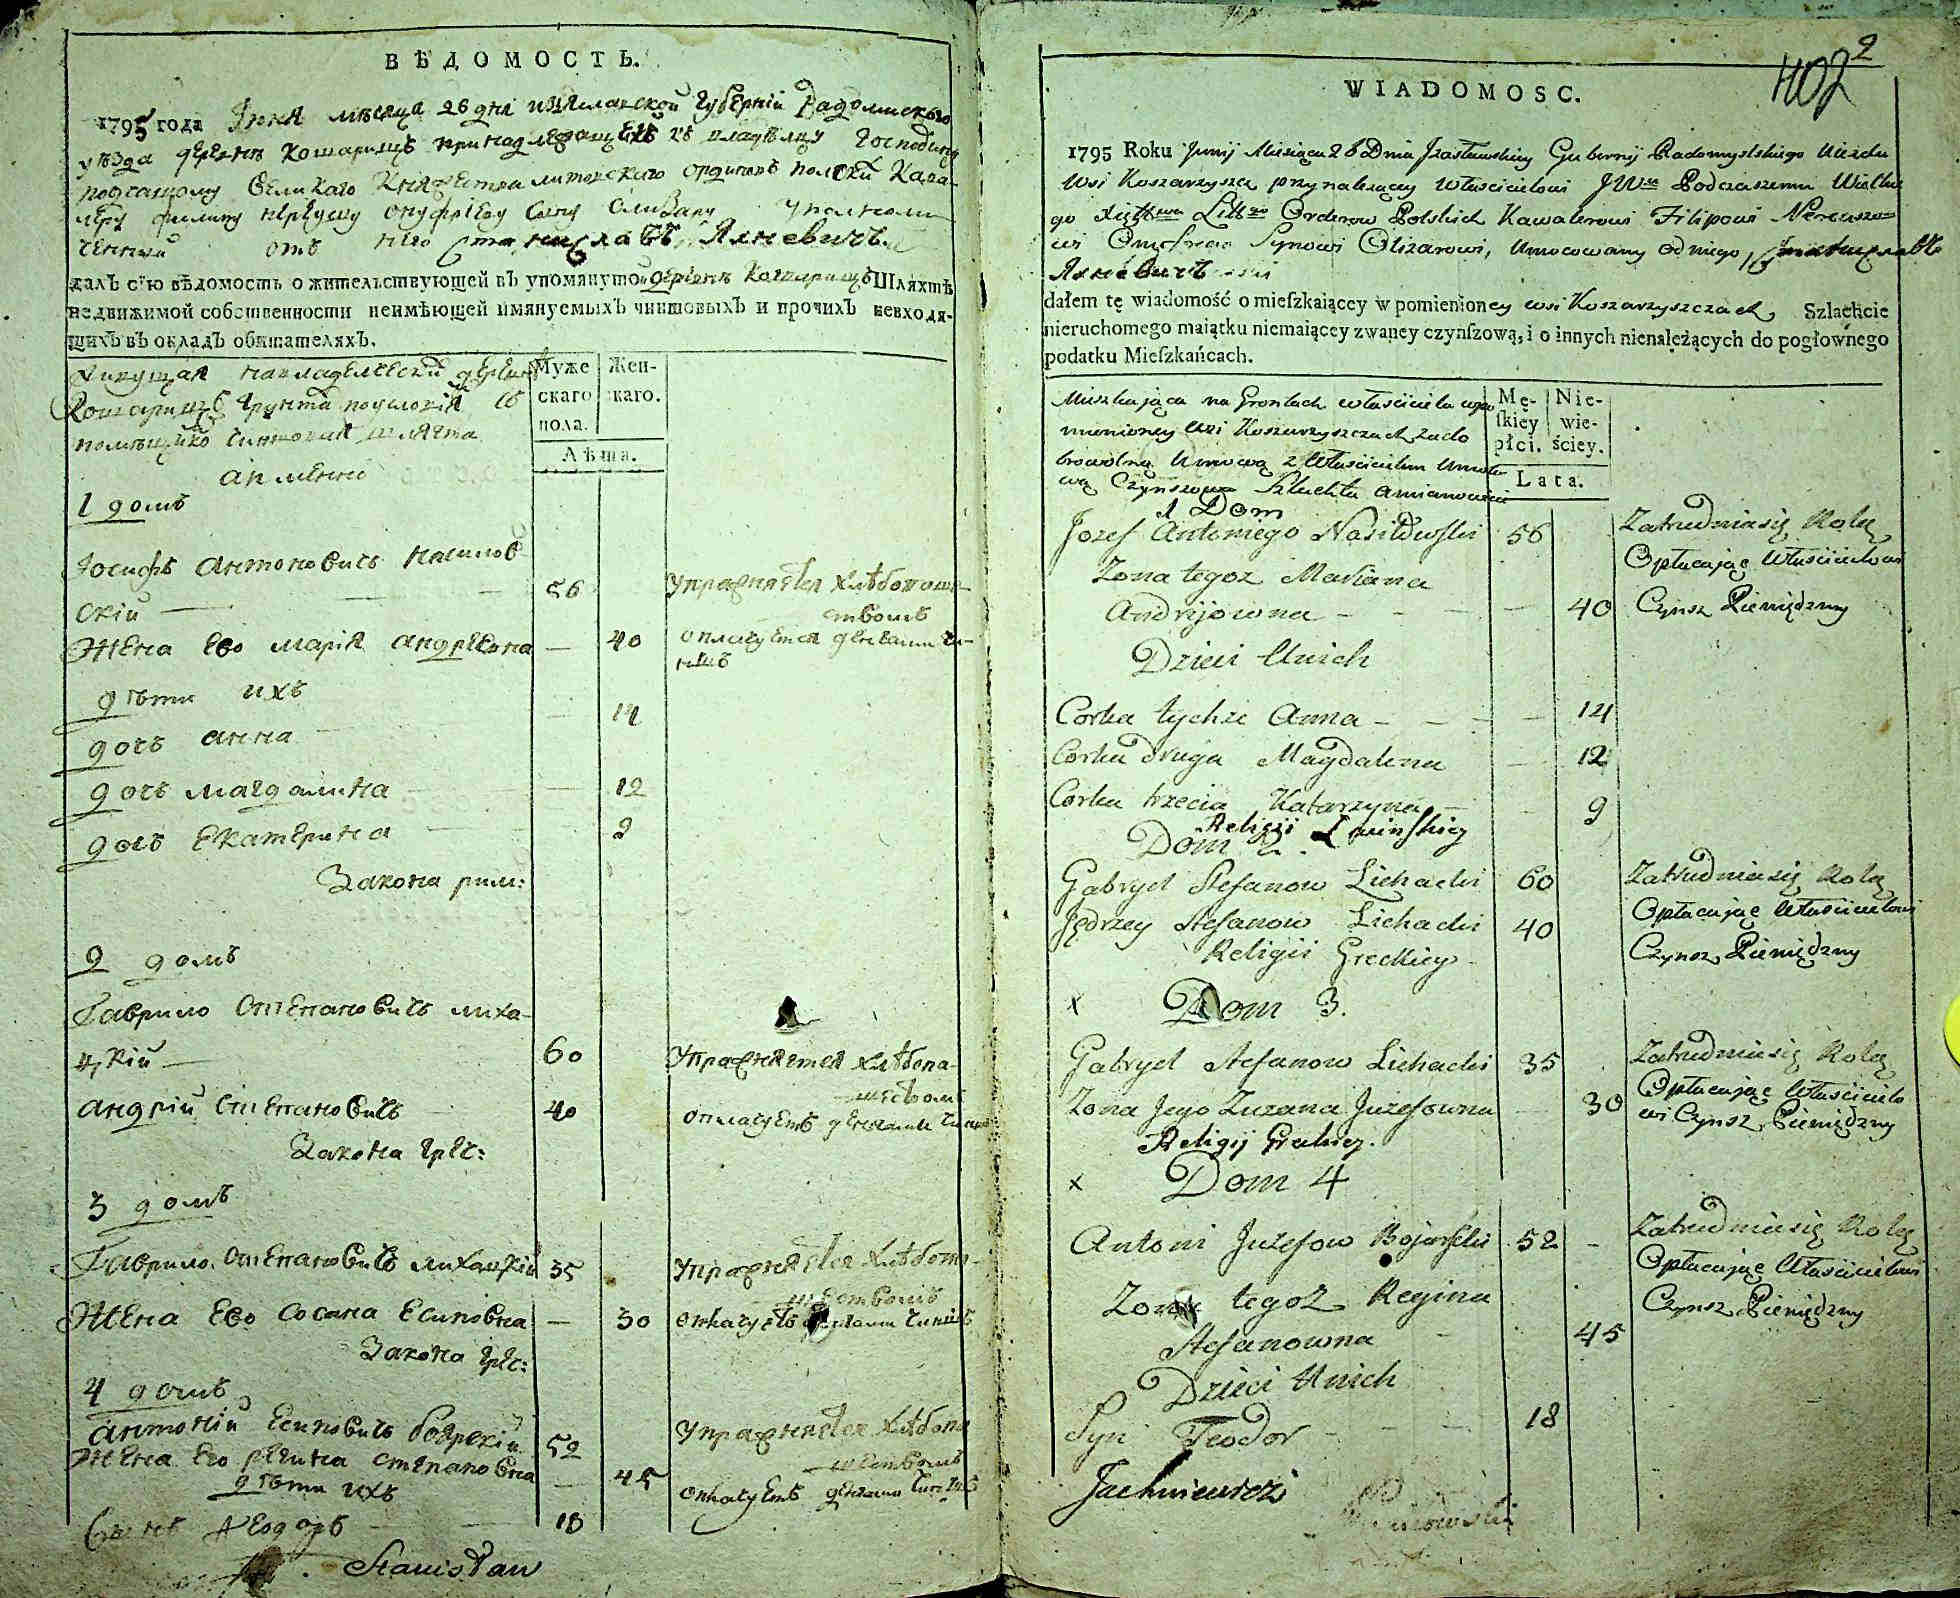 ВѢДОМОСТЬ.
1795 года Іюня мѣсяца 26 дня Изяславской Губерніи Радомыского
уѣзда деревнѣ Кошарищѣ принадлежащей владѣлцу Господину
подчашому великаго Княжества литовского ординовъ полскихъ Кава-
леру филипу нереушу онуфріеву сыну Олизару уполномо-
ченный отъ него Станиславъ Яхневичъ
далъ сію вѣдомость о жительствующей въ упомянутой деревнѣ Кошарищѣ Шляхтѣ
недвижимой собственности неимѣющей имянуемыхъ чиншовыхъ и прочихъ невходя-
щихъ въ окладъ обитателяхъ.
Живущая на владелческой деревнѣ
Кошарищѣ грунта по условія съ
помѣщико чиншовая шляхта
а имѣнно
Муже
скаго
пола.
Жен-
скаго.
Лѣта.
1 домъ
Іосифъ Антоновичъ Насилов
скій 56 Упражняется хлѣбопаше-
ствомъ
Жена Ево марія Андреевна 40 оплачуется денгами чи-
ншъ
дѣти ихъ
дочъ Анна 14
дочъ магдалина 12
дочъ Екатерина 9
Закона рим:
2 домъ
Гаврило Степановичъ лиха-
цкій 60 Упражняется хлѣбопа-
шествомъ
Андрій Степановичъ 40 оплачуетъ денгами чинш
Закона греч:
3 домъ
Гаврило Степановичъ лихацкій 35 Упражняется хлѣбопа-
шествомъ
Жена Ево Сосана Есиповна 30 оплачуетъ денгами чиншъ
Закона греч:
4 домъ
Антоній Есиповичъ боярскій 52 Упражняется хлѣбопа
шествомъ
Жена Его регина степановна 45 оплачуетъ денгами чиншъ
дѣти ихъ
Сынъ Ѳеодоръ 18
Stanisław
402 2
WIADOMOSC.
1795 Roku Junij Miesiąca 26 Dnia Jzasławskiey Gubernij Radomyslskiego Uiazdu
Wsi Koszarzyszcz przynależącey Właścicielowi JWu Podczaszemu Wielkie
go Xięstwa Litt Orderow Polskich Kawalerowi Filipowi Nereuszo=
wi Onufrego Synowi Olizarowi, Umocowany od niego, Станиславъ
Яхневичъ
dałem tę wiadomość o mieſzkaiąccy w pomienioney wsi Koszarzyszczach Szlachcie
nieruchomego maiątku niemaiąccy zwaney czynſzową, i o innych nienależących do pogłownego
podatku Mieſzkańcach.
Mieszkająca na Gruntach właściciela wspo
mnioney wsi Koszarzyszczach za do
browolną Umową z Właścicielem Umoto
wą Czynszowa Szlachta amianowicie
Mę-
ſkiey
płci.
Nie-
wie-
ściey.
Lata.
1 Dom
Jozef Antoniego Nasiłowski 56 Zatrudniasię Rolą
Zona tegoz Maryana Opłacając Właścicielowi
Andrijowna 40 Czynsz Pieniędzmy
Dzieci Unich
Corka tychże Anna 14
Corka druga Magdalena 12
Corka trzecia Katarzyna 9
Religii Łacińskiey
Dom 2.
Gabryel Stefanow Lichacki 60 Zatrudniasię Rolą
Jędrzey Stefanow Lichacki 40 Opłacając Właścicielowi
Religii Greckiey Czynsz Pieniędzmy
x Dom 3.
Gabryel Stefanow Lichacki 35 Zatrudniasię Rolą
Zona Jego Zuzana Juzefowna 30 Opłacając Właściciele
wi Czynsz Pieniędzmy
Religij Grekiey.
x Dom 4
Antoni Juzefow Bojarski 52 Zatrudniasię Rolą
Opłacając Właścicielowi
Zona tegoz Regina Czynsz Pieniędzmy
Stefanowna 45
Dzieci Unich
Syn Teodor 18
Jachniewicz